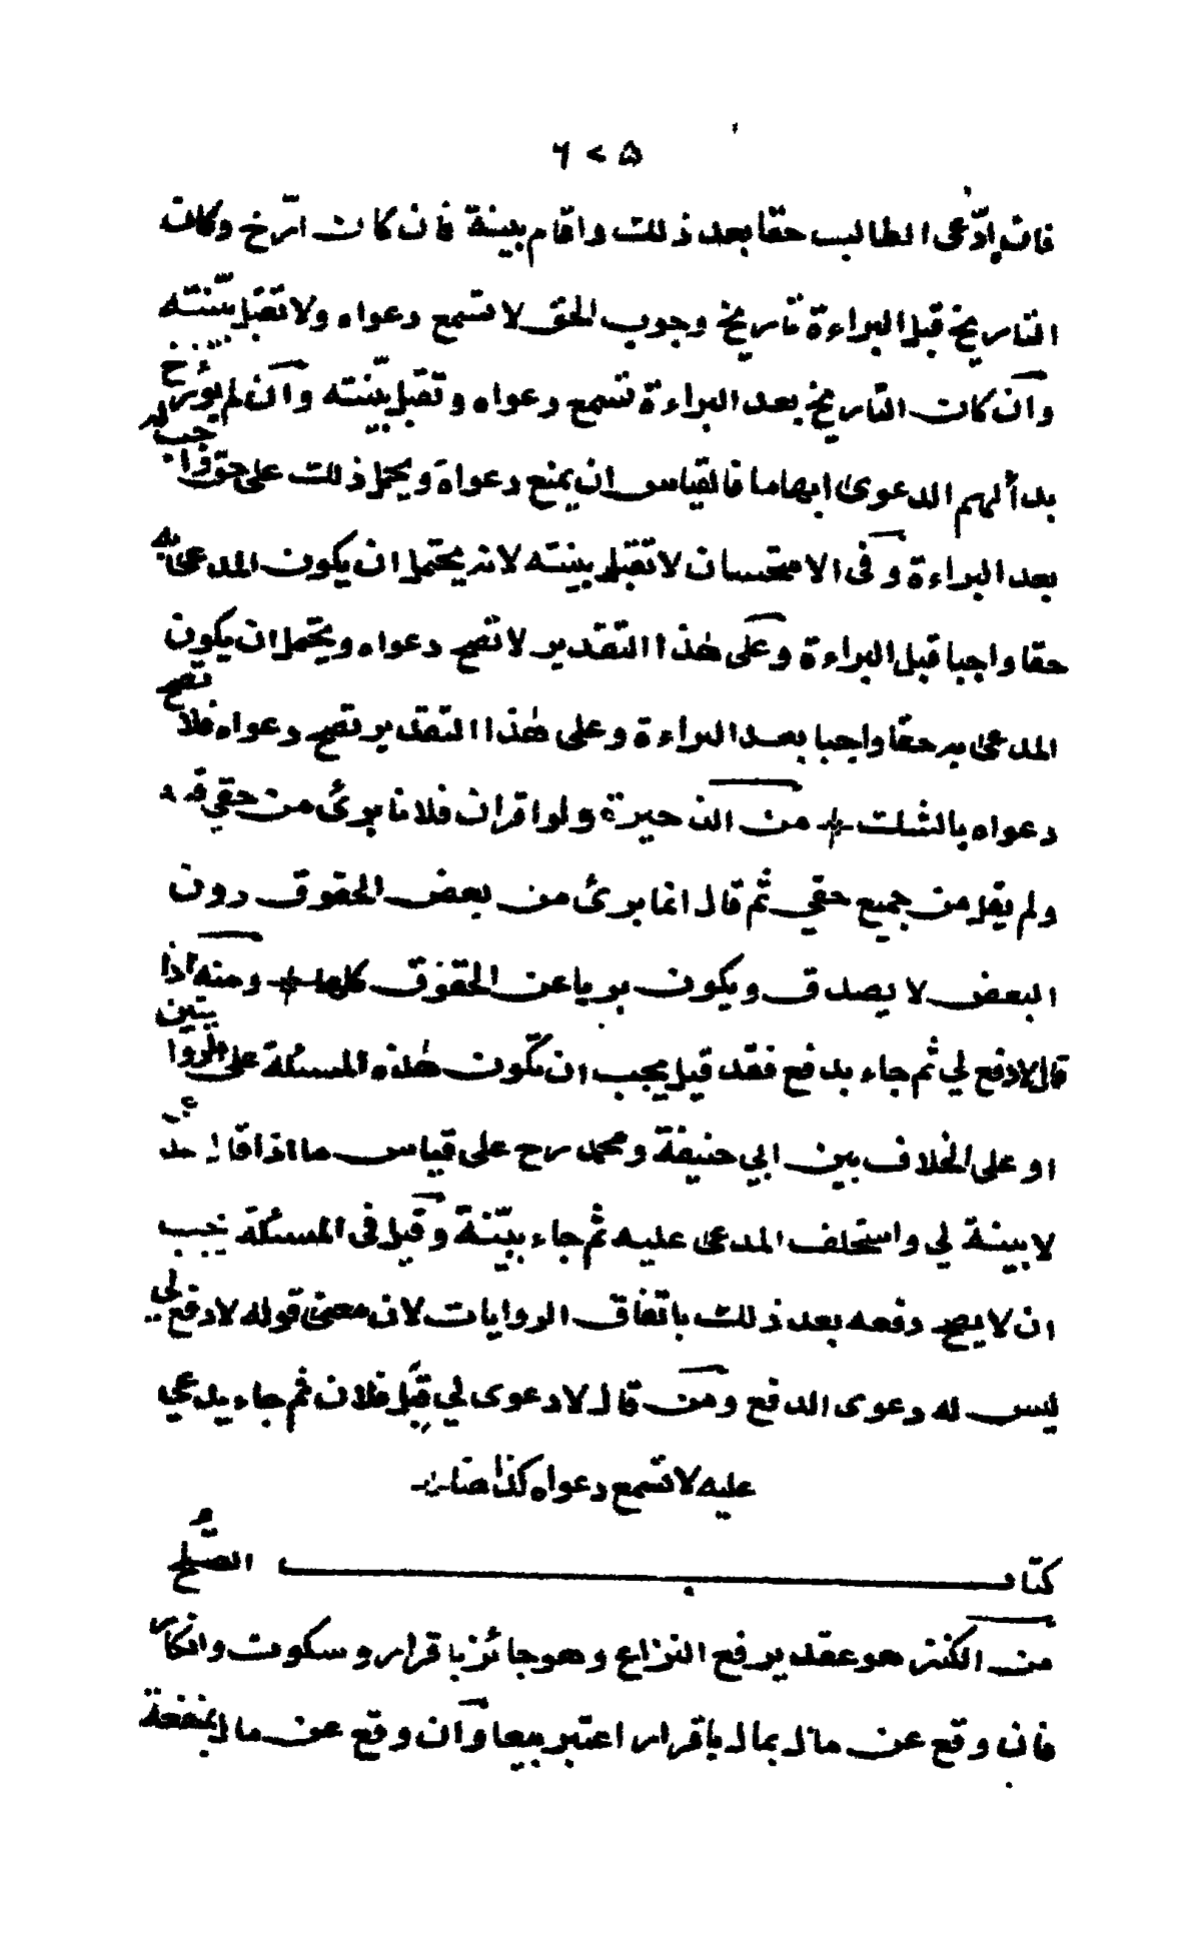 ۶۲۵
فان ادّعى الطالب حقا بعد ذلك واقام بينة فان كان ارّخ وكان
التاريخ قبل البراءة تاريخ وجوب الحق لا تسمع دعواه ولا تقبل بيّنته
وان كان التاريخ بعد البراءة تسمع دعواه وتقبل بيّنته وان لم يؤرخ
بدأ لهم الدعوى ابهاما فالقياس ان يمنع دعواه ويحمل ذلك على حق واجب له
بعد البراءة وفى الاستحسان لا تقبل بينته لانه يحتمل ان يكون المدعى به
حقا واجبا قبل البراءة وعلى هذا التقدير لا تصح دعواه ويحتمل ان يكون
المدعى به حقا واجبا بعد البراءة وعلى هذا التقدير تصح دعواه فلا تصح
دعواه بالشك من الذخيرة ولو اقر ان فلانا برئ من حقي قبله
ولم يقل من جميع حقي ثم قال انما برئ من بعض الحقوق دون
البعض لا يصدق ويكون بريا عن الحقوق كلها ومنه اذا
قال لا دفع لي ثم جاء بدفع فقد قيل يجب ان تكون هذه المسئلة على الروايتين
او على الخلاف بين ابي حنيفة ومحمد رح على قياس ما اذا قال المدعي
لا بينة لي واستحلف المدعى عليه ثم جاء ببيّنة وقيل فى المسئلة يجب
ان لا يصح دفعه بعد ذلك باتفاق الروايات لان معنى قوله لا دفع لي
ليس له دعوى الدفع ومن قال لا دعوى لي قبل فلان ثم جاء يدعي
عليه لا تسمع دعواه كذا
كتاب الصلح
من الكنز هو عقد يرفع النزاع وهو جائز باقرار وسكوت وانكار
فان وقع عن مال بمال باقرار اعتبر بيعا وان وقع عن مال بمنفعة